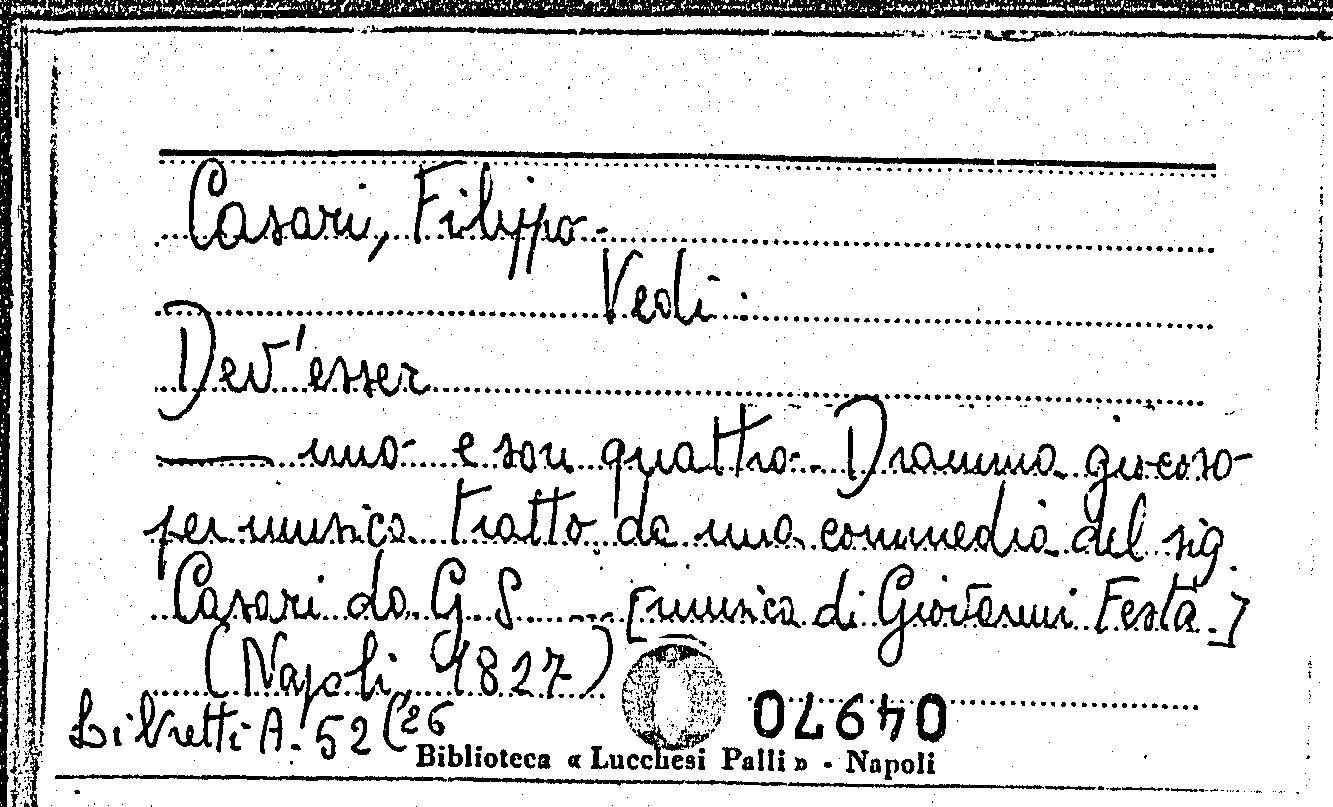 Casari, Filippo -
Vedi:
Dev'esser
— uno e son quattro. Dramma giocoso
per musica tratto da una commedia del sig.
Casari da G. S. ... [musica di Giovanni Festa.]
(Napoli, 1827)
Libretti A. 52 (26
04970
Biblioteca « Lucchesi Palli » - Napoli